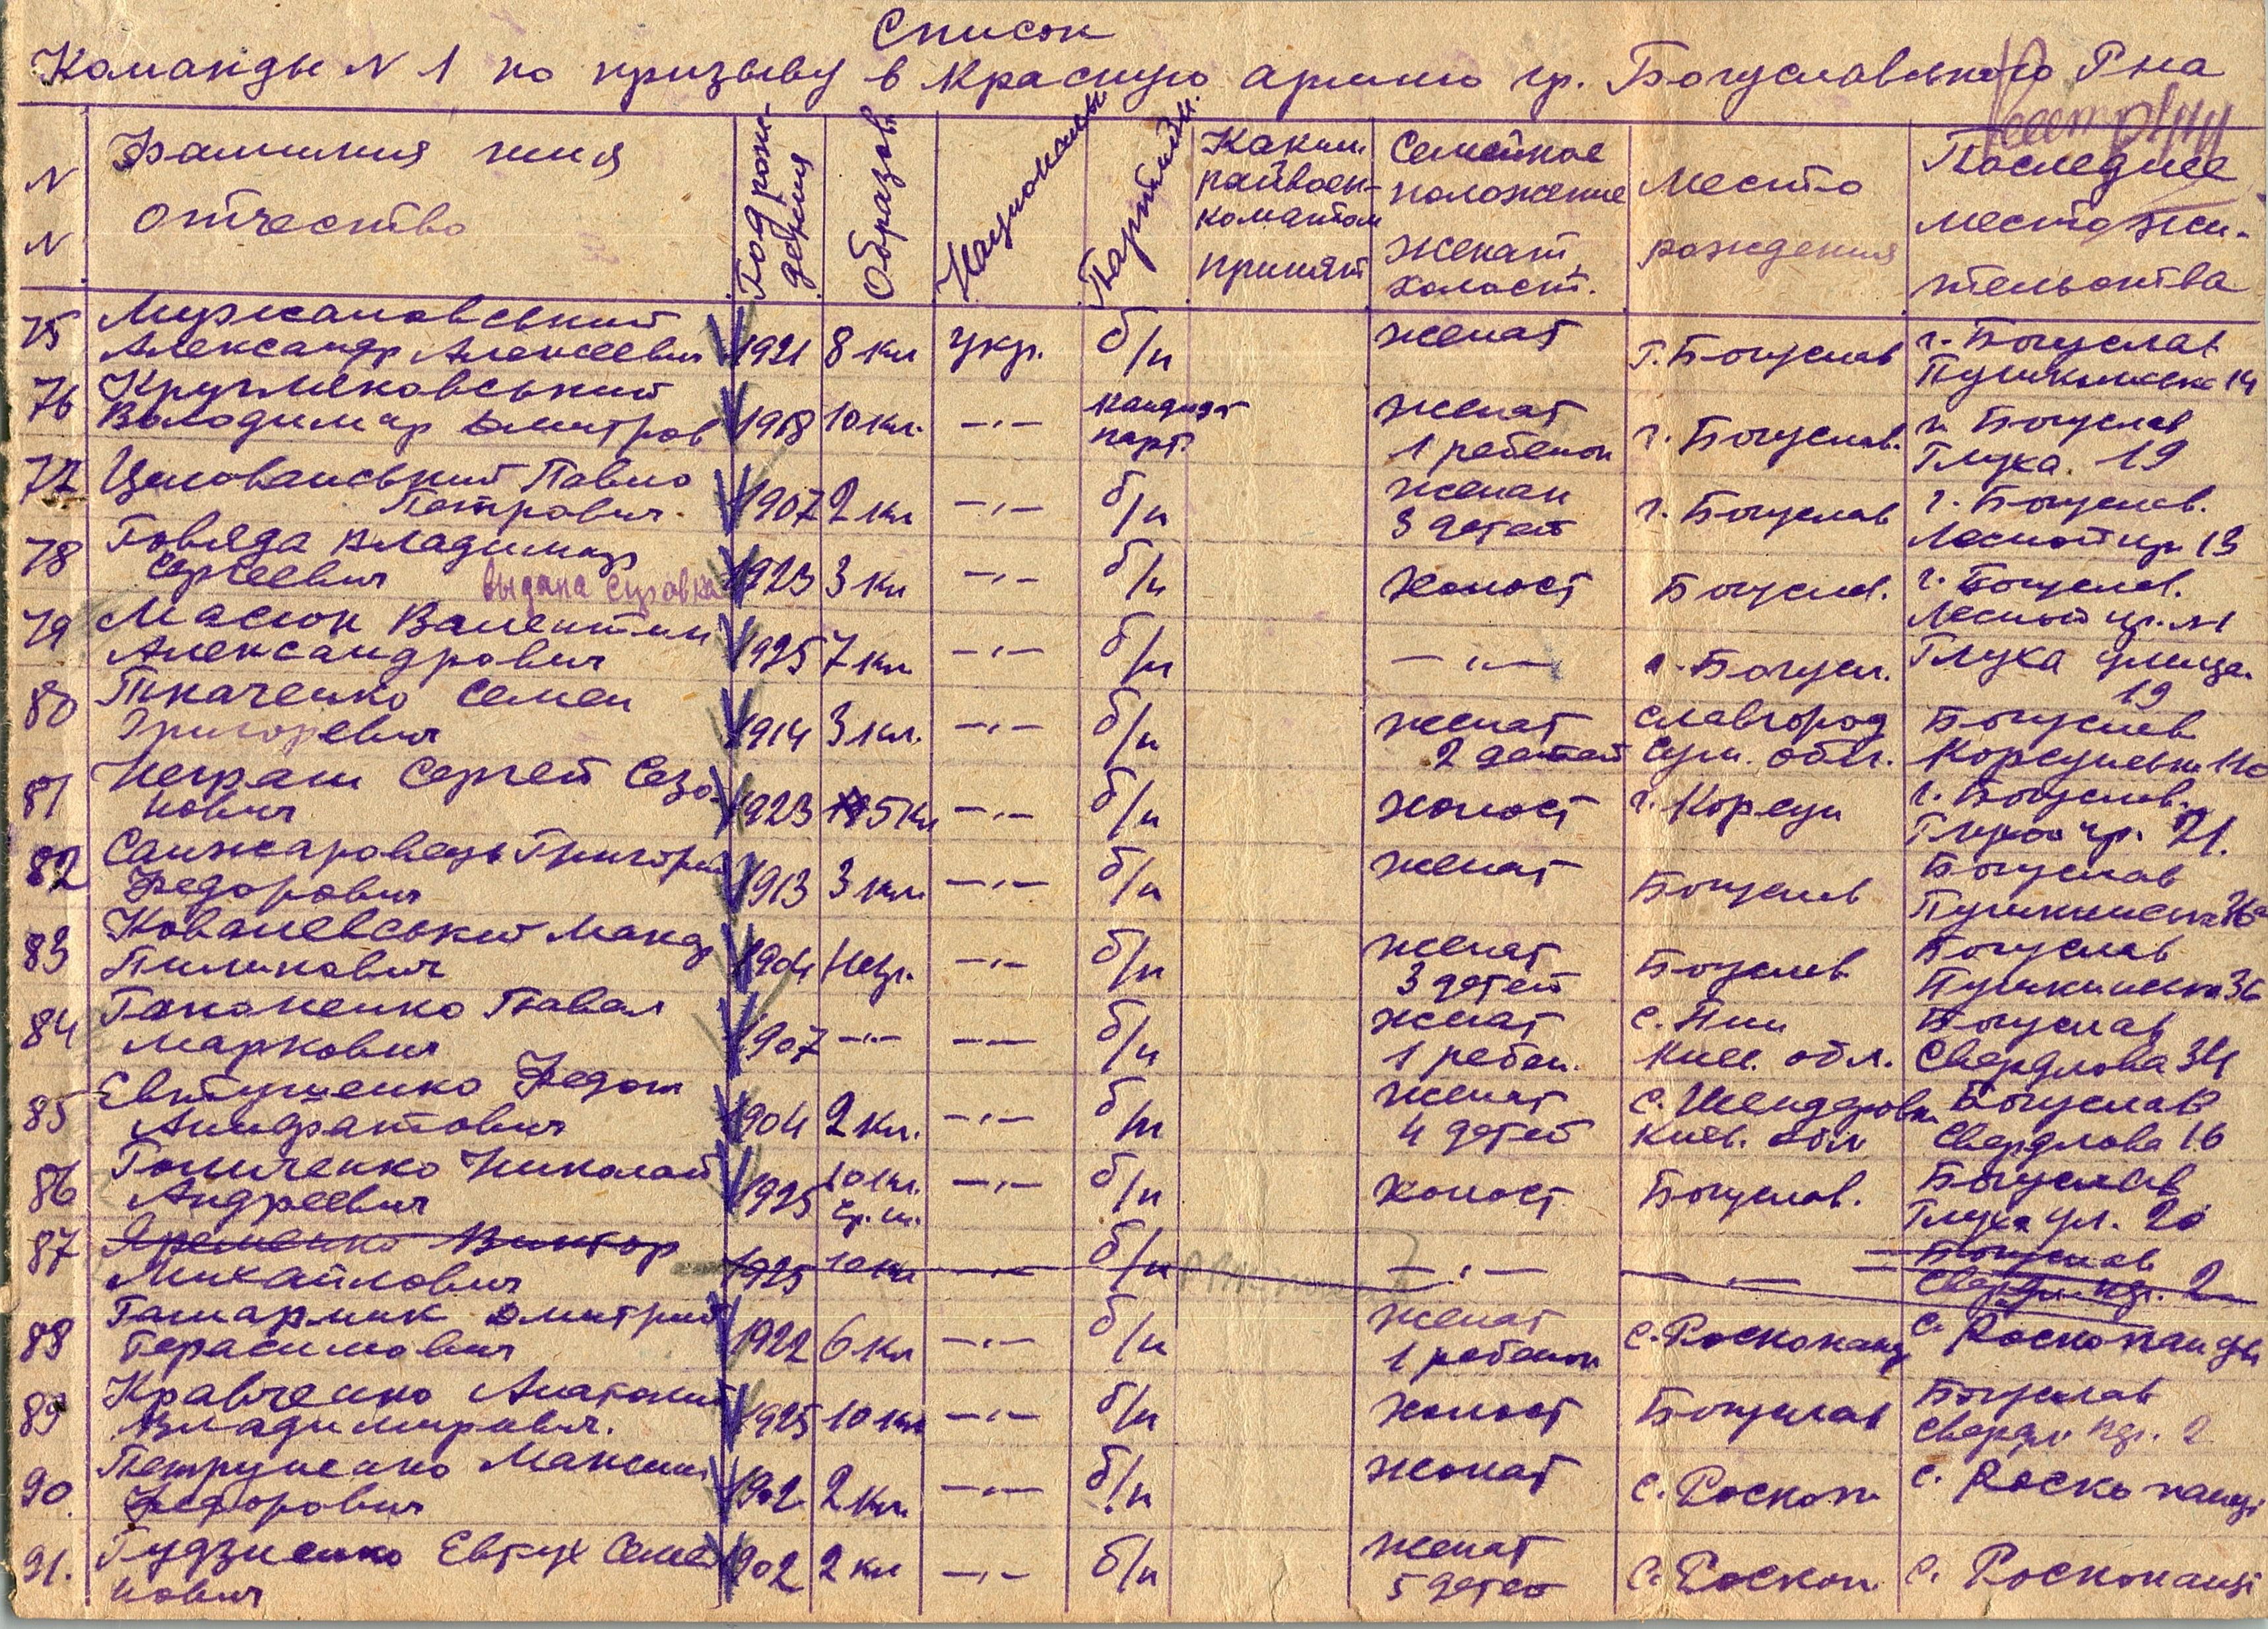 Список
Команды N 1 по призыву в красную армию гр. Богуславського Р-на
N N
Фамилия имя отчество
Год рождения
Образов.
Националь
Партийн.
Каким райвоенкоматом принят
Семейное положение женат, холост.
Место рождения
Последнее местожительства
75 Александр Алексеевич 1921 8 кл укр. б/п женат г. Богуслав г. Богуслав 14
76 Володимир Дмитров 1918 10 кл. -"- кандидат парт. женат 1 ребенок г. Богуслав. г. Богуслав Глуха. 19
77 Павло Петрович. 1907 2 кл -"- б/п женат 3 детей г. Богуслав г. Богуслав. 13
78 Говяда Владимир Сергеевич выдана справка 1923 3 кл -"- б/п холост Богуслав. г. Богуслав.
79 Масюк Валентин Александрович 1925 7 кл -"- б/п -"- г. Богусл. Глуха улица. 19
80 Ткаченко Семен Григоревич 1914 3 кл. -"- б/п женат 2 детей Славгород Сум. обл. Богуслав
81 Сергей Сазонович 1923 5 кл -"- б/п холост г. Корсун г. Богуслав. 21.
82 Санжаровець Григорий Федорович 1913 3 кл. -"- б/п женат Богуслав Богуслав
83 Ковалевський Макар Пилипович 1904 -"- б/п женат 3 детей Богуслав Богуслав Пушкинська 36
84 Гапоненко Павел Маркович 1907 -"- -"- б/п женат 1 ребен. Киев. обл. Богуслав Свердлова 34
85 Евтушенко Федот 1904 2 кл. -"- б/п женат 4 детей с. Шендеровка Киев. обл Богуслав Свердлова 16
86 Николай Андреевич 1925 10 кл. ср. ш. -"- б/п холост Богуслав. Богуслав Глуха ул. 20
87 Яременко Виктор Михайлович 1925 10 кл -"- б/п -"- -"- Богуслав 2
88 Дмитрий Герасимович 1922 6 кл -"- б/п женат 1 ребенок с. Росконанц с. Росконанци
89 Кравченко Анатолий Владимирович. 1925 10 кл -"- б/п холост Богуслав Богуслав 2
90. Максим Федорович 1902 2 кл. -"- б/п женат с. Роскоп с. Роскопанці
91. Гудзиенко Евтух Семенович 1902 2 кл -"- б/п женат 5 детей с. Роскоп. с. Роскопанці